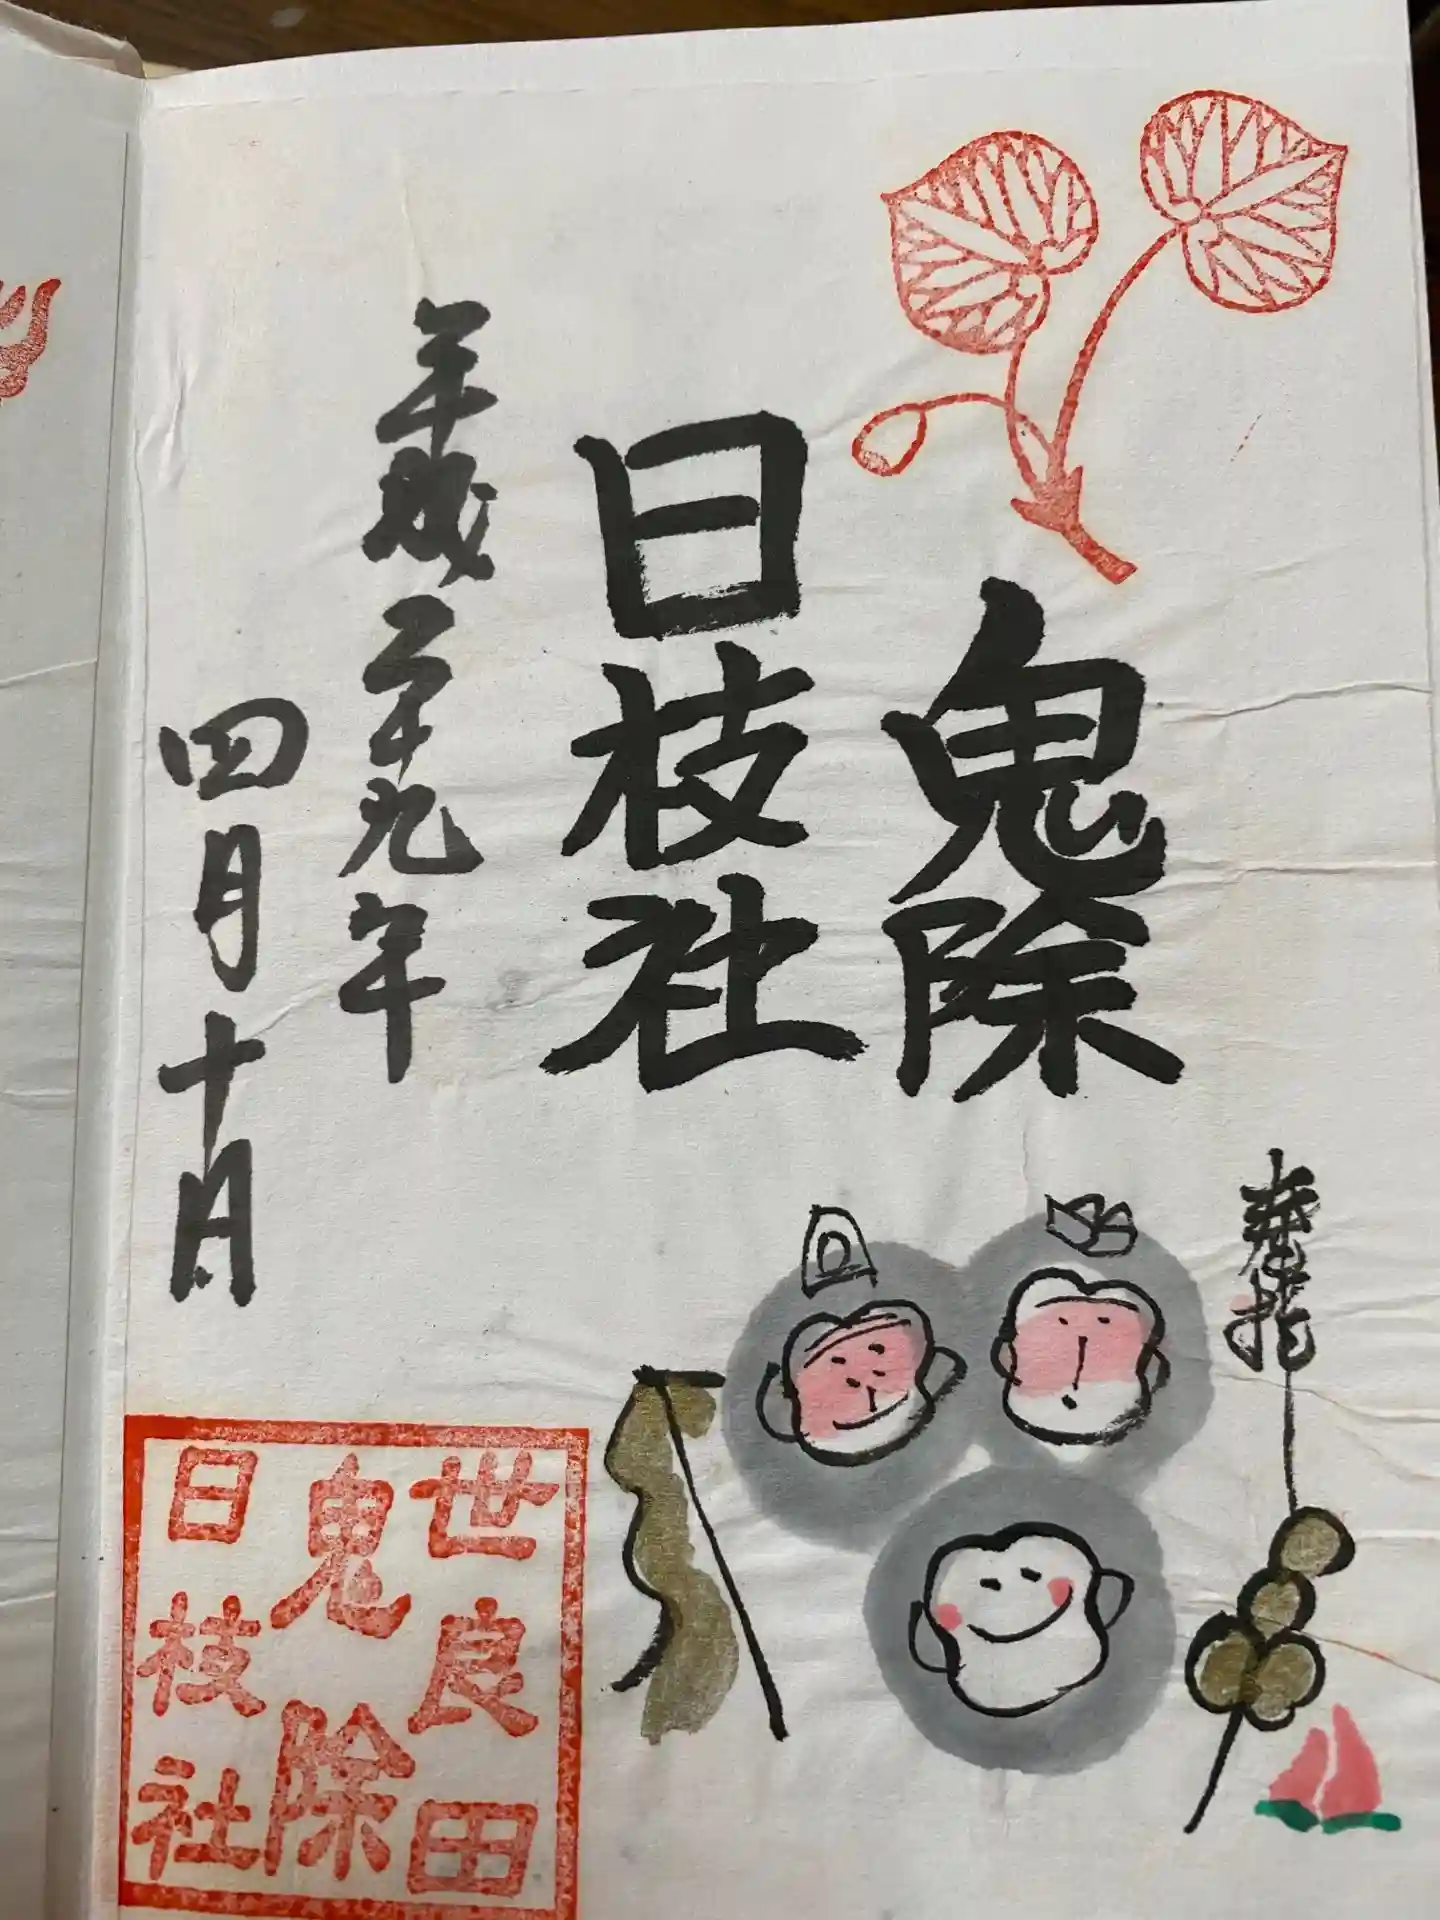 奉拝
鬼除
日枝社
平成二十九年
四月十日
世良田
鬼除
日枝社